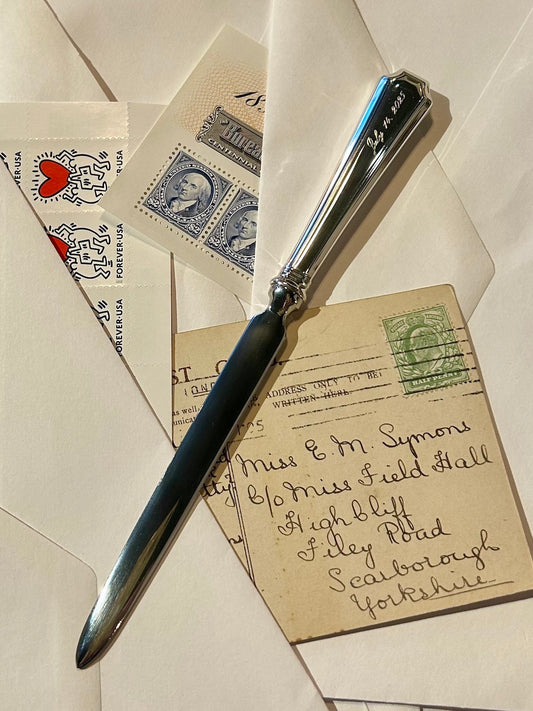 July 16, 2025
FOREVER·USA
FOREVER·USA
FOREVER·USA
CENTENNIAL
ST
LONDON
ADDRESS ONLY TO BE
WRITTEN HERE.
as well
HALF PENNY
Miss E. M. Symons
C/o Miss Field Hall
Highcliff
Filey Road
Scarborough
Yorkshire